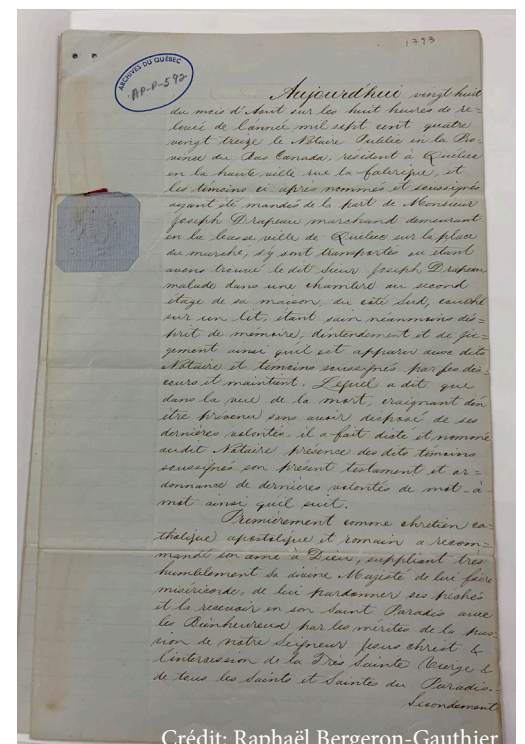 1793
ARCHIVES DU QUÉBEC
AP-P-592
Aujourd'hui vingt huit
du mois d'Aout sur les huit heures de re=
levée de l'année mil sept cent quatre
vingt treize le Notaire Public en la Pro=
vince du Bas Canada, résident à Québec
en la haute ville rue la fabrique, et
les témoins ci après nommés et soussignés
ayant été mandés de la part de Monsieur
Joseph Drapeau marchand demeurant
en la basse ville de Québec sur la place
du marché, s'y sont transportés ou étant
avons trouvé le dit Sieur Joseph Drapeau
malade dans une chambre au second
étage de sa maison, du côté Sud, couché
sur un lit, étant sain néanmoins d'es=
prit de mémoire, d'entendement et de ju=
gement ainsi qu'il est apparu aux dits
Notaire et témoins soussignés par ses dis=
cours et maintient. Lequel a dit que
dans la vue de la mort, craignant d'en
être prévenu sans avoir disposé de ses
dernières volontés, il a fait dicté et nommé
audit Notaire présence des dits témoins
soussignés son présent testament et or=
donnance de dernières volontés de mot-à-
mot ainsi qu'il suit.
Premièrement comme chretien ca=
tholique apostolique et romain a recom=
mandé son ame à Dieu, suppliant très
humblement Sa divine Majesté de lui faire
miséricorde, de lui pardonner ses péchés
et la recevoir en son Saint Paradis avec
les Bienheureux par les mérites de la pas=
sion de notre Seigneur Jesus christ &
l'intercession de la Très Sainte Vierge &
de tous les Saints et Saintes du Paradis.
Secondement
Crédit: Raphaël Bergeron-Gauthier